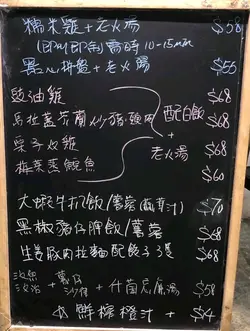 糯米雞 + 老火湯 $58
(即叫即制 需時 10-15min
點心拼盤 + 老火湯 $55
豉油雞 $68
馬拉盞芥蘭炒豬頸肉 $68
栗子炆雞 $68
梅菜蒸鯇魚 $60
配白飯
+
老火湯
大蝦牛扒飯/薯蓉 $70
黑椒猪仔脾飯/薯蓉 $68
生姜豚肉拉麵配餃子3隻 $68
汲魚
+ 薯仔
沙律
+ 什菌忌廉湯 $58
鮮檸橙汁 + $4